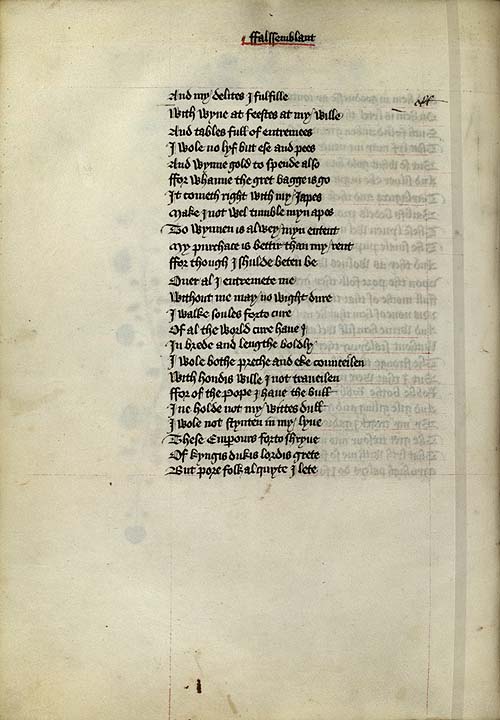 ffalssemblant
And my delites I fulfille
With wyne at feestes at my wille
And tables full of entremees
I wole no lyf but ese and pees
And wynne gold to spende also
ffor whanne the gret bagge is go
It cometh right with my Iapes
Make I not wel tumble myn apes
To wynnen is alwey myn entent
My purchace is bettir than my rent
ffor though I shulde beten be
Ouer al I entremete me
Without me may no wight dure
I walke soules forto cure
Of al the world cure haue I
In brede and lengthe boldly
I wole bothe preche and eke counceilen
With hondis wille I not traueilen
ffor of the Pope I haue the bull
I ne holde not my wittes dull
I wole not stynten in my lyue
These Emperours forto shryue
Of kyngis dukis lordis grete
But pore folk al quyte I lete